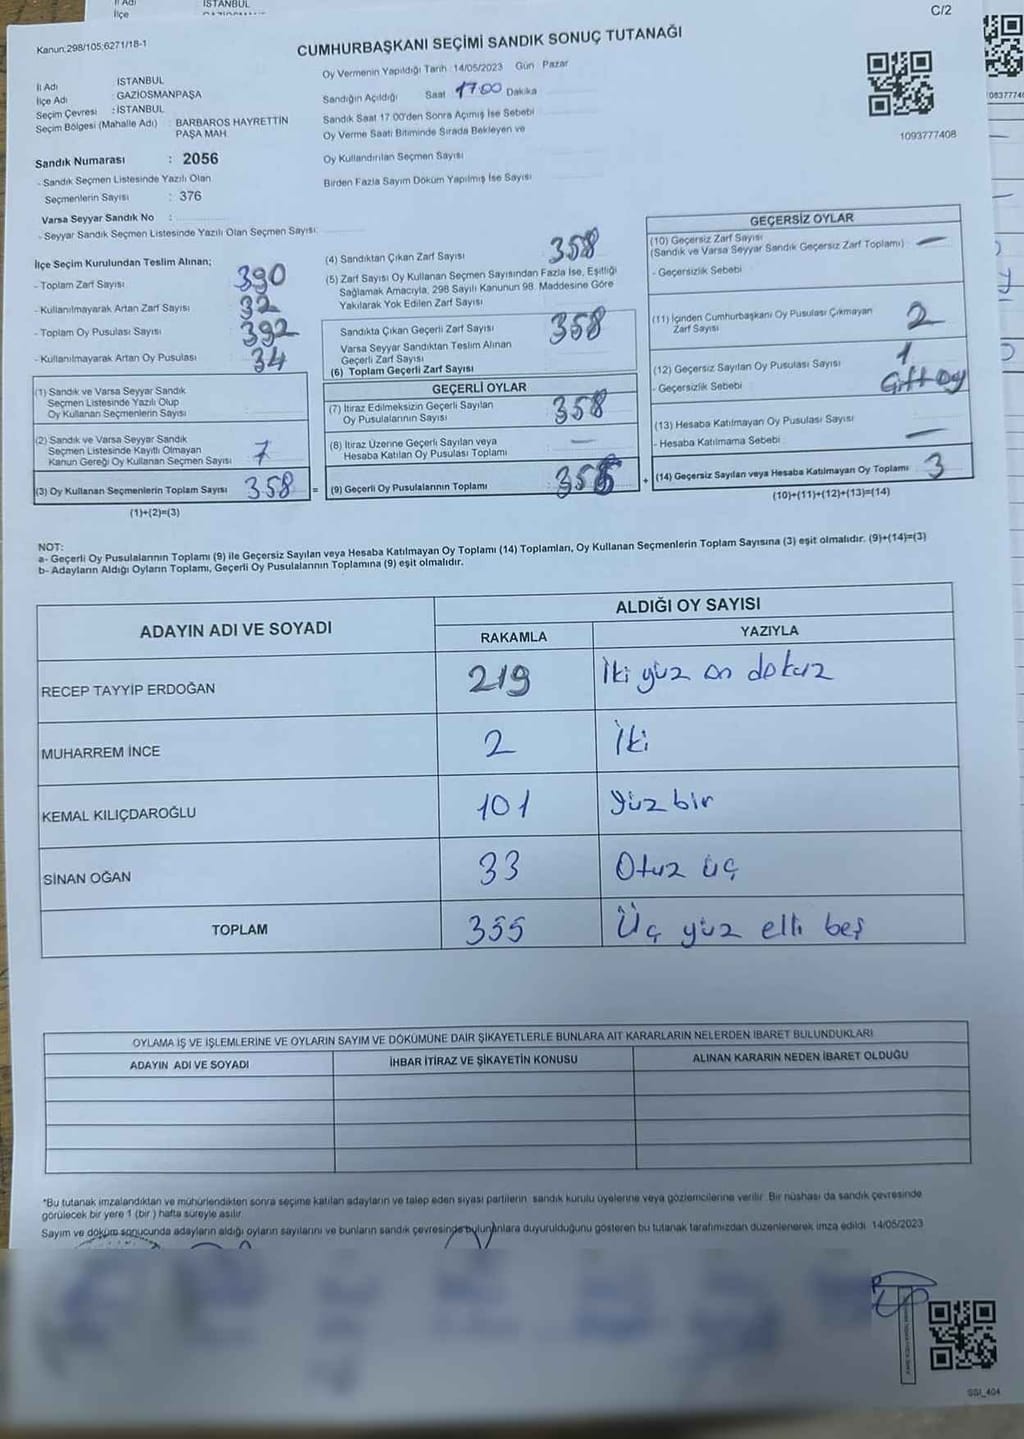 İl Adı
İSTANBUL
İlçe
C/2
Kanun:298/105;6271/18-1
CUMHURBAŞKANI SEÇİMİ SANDIK SONUÇ TUTANAĞI
İl Adı İSTANBUL
İlçe Adı : GAZİOSMANPAŞA
Seçim Çevresi : İSTANBUL
Seçim Bölgesi (Mahalle Adı) : BARBAROS HAYRETTİN
PAŞA MAH.
Sandık Numarası : 2056
- Sandık Seçmen Listesinde Yazılı Olan
Seçmenlerin Sayısı : 376
Varsa Seyyar Sandık No :
- Seyyar Sandık Seçmen Listesinde Yazılı Olan Seçmen Sayısı:
Oy Vermenin Yapıldığı Tarih :14/05/2023 Gün Pazar
Sandığın Açıldığı Saat 17:00 Dakika
Sandık Saat 17.00'den Sonra Açımış İse Sebebi
Oy Verme Saati Bitiminde Sırada Bekleyen ve
Oy Kullandırılan Seçmen Sayısı
Birden Fazla Sayım Döküm Yapılmış İse Sayısı
1093777408
İlçe Seçim Kurulundan Teslim Alınan;
- Toplam Zarf Sayısı 390
- Kullanılmayarak Artan Zarf Sayısı 32
- Toplam Oy Pusulası Sayısı 392
- Kullanılmayarak Artan Oy Pusulası 34
(1) Sandık ve Varsa Seyyar Sandık
Seçmen Listesinde Yazılı Olup
Oy Kullanan Seçmenlerin Sayısı
(2) Sandık ve Varsa Seyyar Sandık
Seçmen Listesinde Kayıtlı Olmayan
Kanun Gereği Oy Kullanan Seçmen Sayısı 7
(3) Oy Kullanan Seçmenlerin Toplam Sayısı 358 =
(1)+(2)=(3)
(4) Sandıktan Çıkan Zarf Sayısı 358
(5) Zarf Sayısı Oy Kullanan Seçmen Sayısından Fazla İse, Eşitliği
Sağlamak Amacıyla, 298 Sayılı Kanunun 98. Maddesine Göre
Yakılarak Yok Edilen Zarf Sayısı
Sandıkta Çıkan Geçerli Zarf Sayısı 358
Varsa Seyyar Sandıktan Teslim Alınan
Geçerli Zarf Sayısı
(6) Toplam Geçerli Zarf Sayısı
GEÇERLİ OYLAR
(7) İtiraz Edilmeksizin Geçerli Sayılan
Oy Pusulalarının Sayısı 358
(8) İtiraz Üzerine Geçerli Sayılan veya
Hesaba Katılan Oy Pusulası Toplamı —
(9) Geçerli Oy Pusulalarının Toplamı 355 +
GEÇERSİZ OYLAR
(10) Geçersiz Zarf Sayısı
(Sandık ve Varsa Seyyar Sandık Geçersiz Zarf Toplamı) —
- Geçersizlik Sebebi
(11) İçinden Cumhurbaşkanı Oy Pusulası Çıkmayan
Zarf Sayısı 2
(12) Geçersiz Sayılan Oy Pusulası Sayısı 1
- Geçersizlik Sebebi Çift Oy
(13) Hesaba Katılmayan Oy Pusulası Sayısı
- Hesaba Katılmama Sebebi —
(14) Geçersiz Sayılan veya Hesaba Katılmayan Oy Toplamı 3
(10)+(11)+(12)+(13)=(14)
NOT:
a- Geçerli Oy Pusulalarının Toplamı (9) ile Geçersiz Sayılan veya Hesaba Katılmayan Oy Toplamı (14) Toplamları, Oy Kullanan Seçmenlerin Toplam Sayısına (3) eşit olmalıdır. (9)+(14)=(3)
b- Adayların Aldığı Oyların Toplamı, Geçerli Oy Pusulalarının Toplamına (9) eşit olmalıdır.
ADAYIN ADI VE SOYADI
ALDIĞI OY SAYISI
RAKAMLA YAZIYLA
RECEP TAYYİP ERDOĞAN 219 İki yüz on dokuz
MUHARREM İNCE 2 İki
KEMAL KILIÇDAROĞLU 101 Yüz bir
SİNAN OĞAN 33 Otuz üç
TOPLAM 355 Üç yüz elli beş
OYLAMA İŞ VE İŞLEMLERİNE VE OYLARIN SAYIM VE DÖKÜMÜNE DAİR ŞİKAYETLERLE BUNLARA AİT KARARLARIN NELERDEN İBARET BULUNDUKLARI
ADAYIN ADI VE SOYADI İHBAR İTİRAZ VE ŞİKAYETİN KONUSU ALINAN KARARIN NEDEN İBARET OLDUĞU
*Bu tutanak imzalandıktan ve mühürlendikten sonra seçime katılan adayların ve talep eden siyasi partilerin sandık kurulu üyelerine veya gözlemcilerine verilir. Bir nüshası da sandık çevresinde
görülecek bir yere 1 (bir) hafta süreyle asılır.
Sayım ve döküm sonucunda adayların aldığı oyların sayılarını ve bunların sandık çevresinde bulunanlara duyurulduğunu gösteren bu tutanak tarafımızdan düzenlenerek imza edildi. 14/05/2023